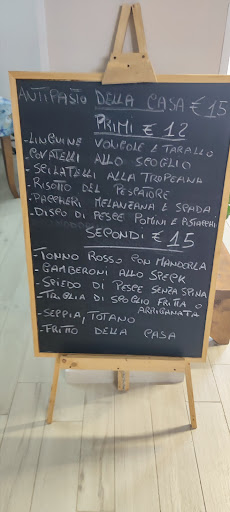 ANTIPASTO DELLA CASA €15
PRIMI €12
-LINGUINE VONGOLE E TARALLO
-CAVATELLI ALLO SCOGLIO
-SCILATELLI ALLA TROPEANA
-RISOTTO DEL PESCATORE
-PACCHERI MELANZANA E SPADA
-DISPO DI PESCE POMINI E PISTACCHI
SECONDI €15
-TONNO ROSSO CON MANDORLA
-GAMBERONI ALLO SPEEK
-SPIEDO DI PESCE SENZA SPINA
-TRIGLIA DI SCOGLIO FRITTA O
ARRIGANATA
-SEPPIA, TOTANO
-FRITTO DELLA CASA